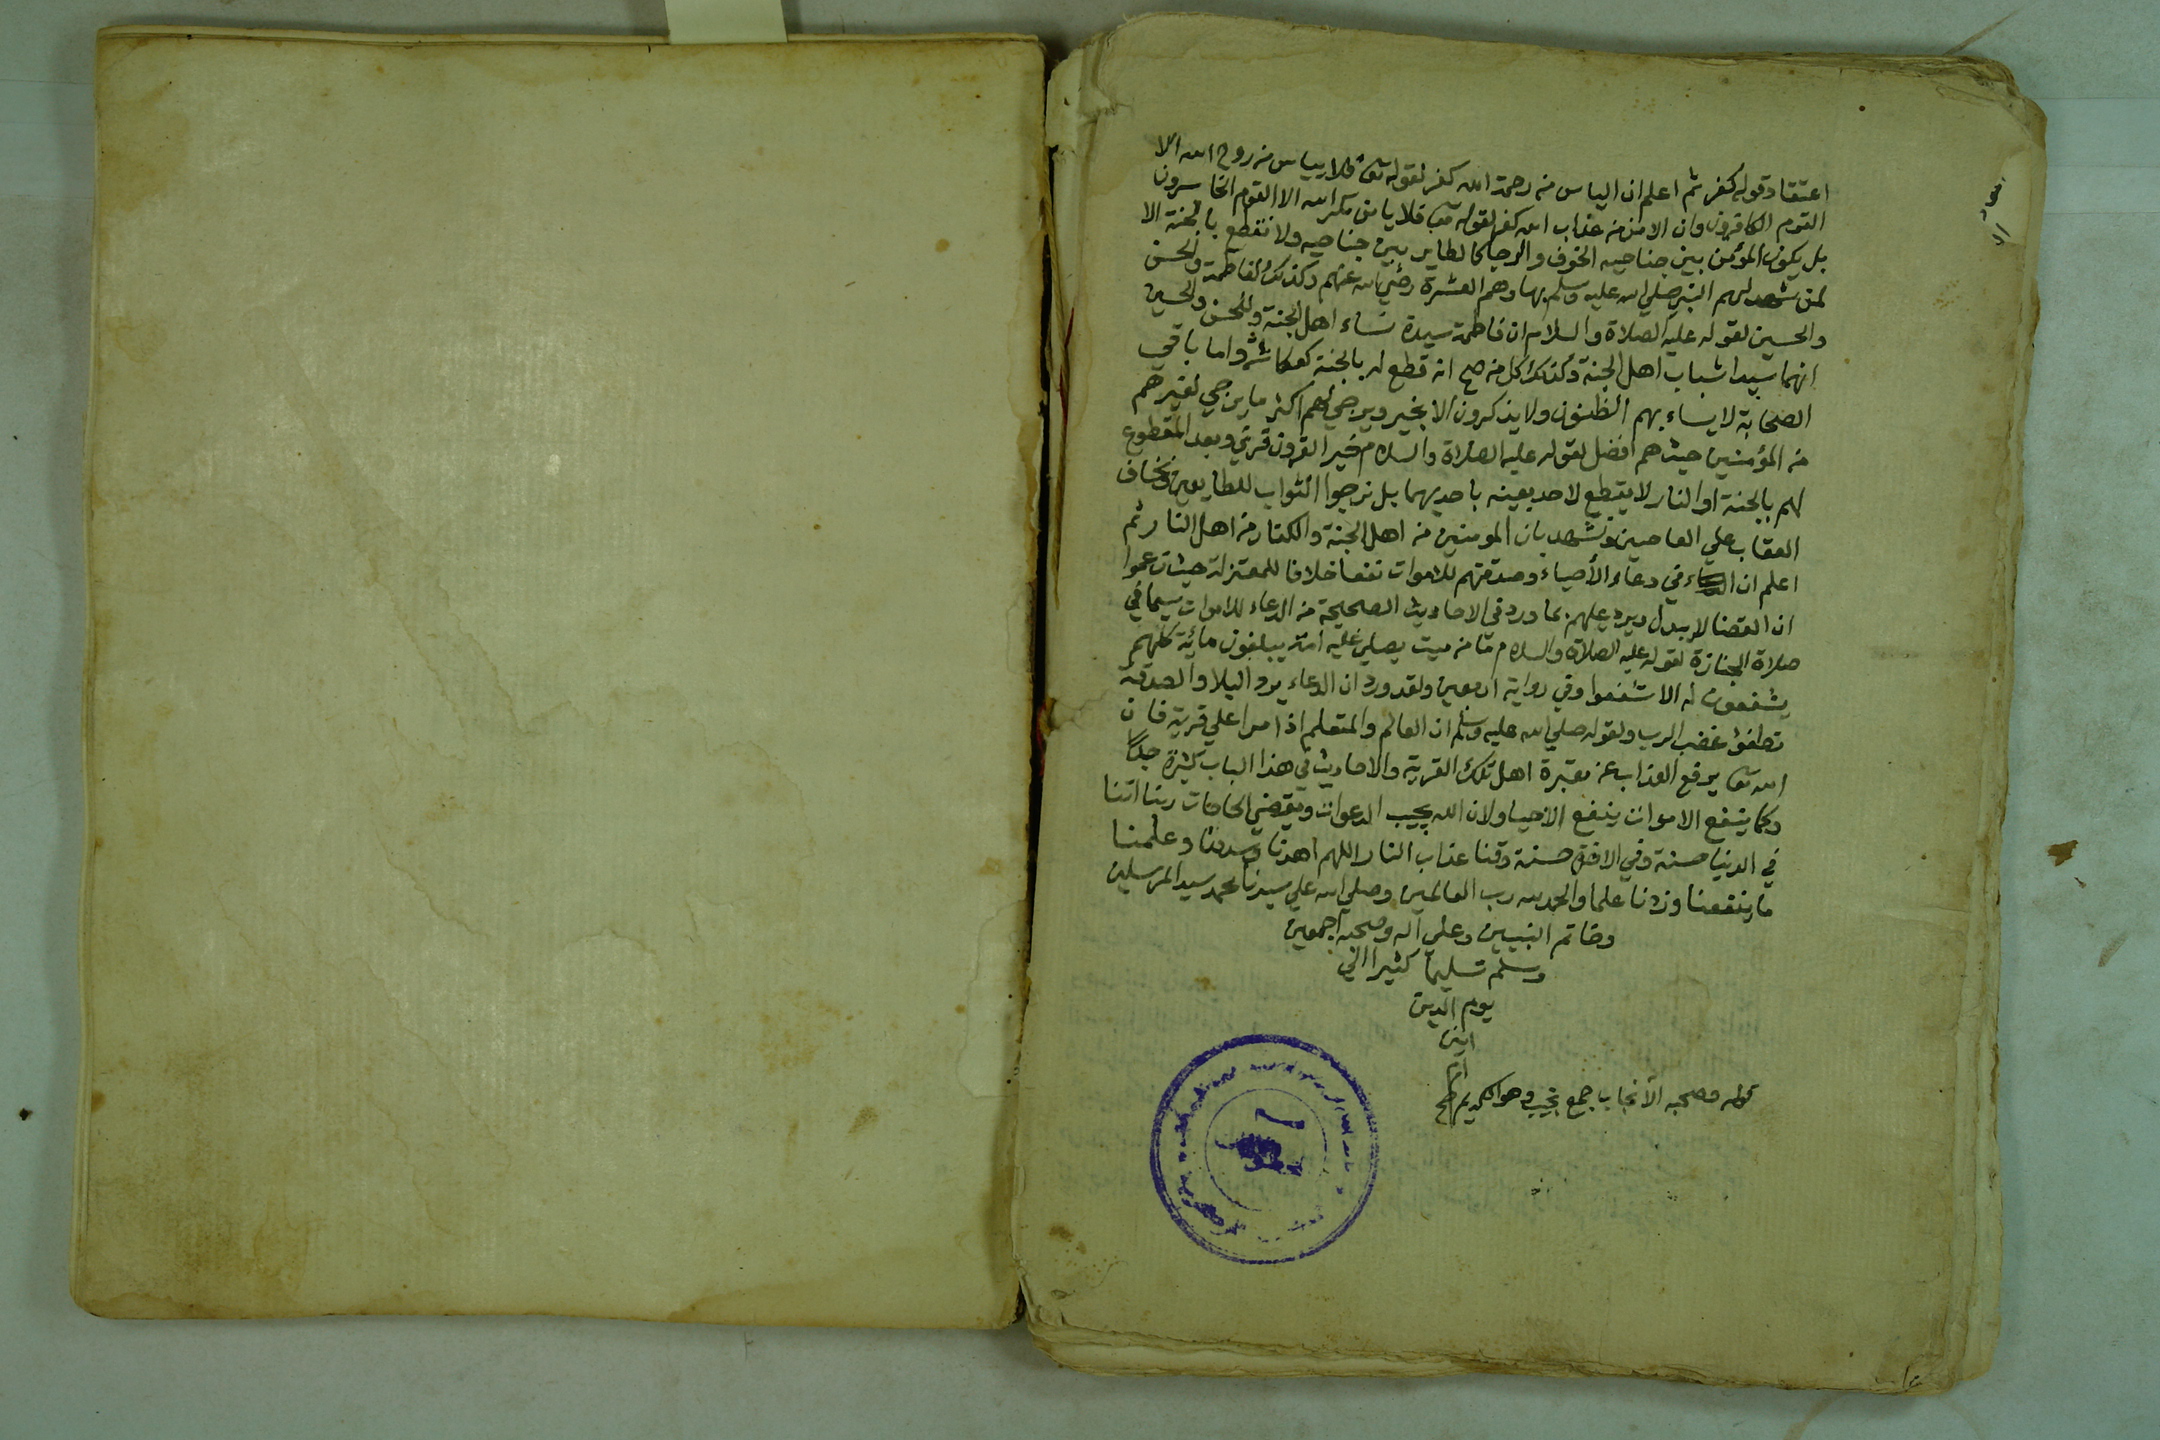 اعتقاد قوله كفر ثم اعلم ان الياس من رحمة الله كفر لقوله تعالى فلا يياس من روح الله الا
القوم الكافرون وان الامن من عذاب الله كفر لقوله تعا فلا يامن مكر الله الا القوم الخاسرون
بل يكون المؤمن بين جناحيه الخوف والرجا كالطاير بين جناحيه ولا نقطع بالجنة الا
لمن شهد لهم النبي صلي الله عليه وسلم بها وهم العشرة رضي الله عنهم وكذلك لفاطمة والحسن
والحسين لقوله عليه الصلاة والسلام ان فاطمة سيدة نساء اهل الجنة والحسن والحسين
انهما سيدا شباب اهل الجنة وكذلك كل من صح انه قطع له بالجنة كعكاشة واما باقي
الصحابة لا يساء بهم الظنون ولا يذكرون الا بخير ويرجي لهم اكثر ما يرجي لغيرهم
من المؤمنين حيث هم افضل لقوله عليه الصلاة والسلام خير القرون قرني وبعد المقطوع
لهم بالجنة او النار لا يقطع لاحد بعينه باحديهما بل نرجوا الثواب للطايعين ونخاف
العقاب علي العاصين ونشهد بان المومنين من اهل الجنة والكفار من اهل النار ثم
اعلم ان في دعاء الأحياء وصدقتهم للاموات نفعا خلافا للمعتزلة حيث زعموا
ان القضا لا يبدل ويرد عليهم بما ورد في الاحاديث الصحيحة من الدعاء للاموات سيما في
صلاة الجنازة لقوله عليه الصلاة والسلام ما من ميت يصلي عليه امة يبلغون مائة كلهم
يشفعون له الا شفعوا وفي رواية اربعين ولقد ورد ان الدعاء يرد البلا والصدقة
تطفؤ غضب الرب ولقوله صلي الله عليه وسلم ان العالم والمتعلم اذا مرا علي قرية فان
الله تعا يرفع العذاب عن مقبرة اهل تلك القرية والاحاديث في هذا الباب كثيرة جداً
وكما ينفع الاموات ينفع الاحيا ولان الله يجيب الدعوات ويقضي الحاجات ربنا اتنا
في الدنيا حسنة وفي الاخرة حسنة وقنا عذاب النار اللهم اهدنا وسددنا وعلمنا
ما ينفعنا وزدنا علما والحمد لله رب العالمين وصلي الله علي سيدنا محمد سيد المرسلين
وخاتم النبيين وعلي اله وصحبه اجمعين
وسلم تسليما كثيرا الي
يوم الدين
امين
ام
قوله وصحبه الأنجاب جمع نجيب وهو الكريم